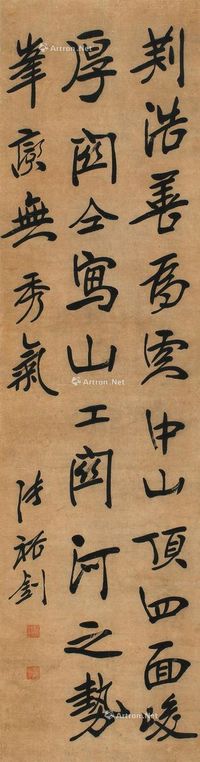 荆浩善爲雲中山頂四面峻
厚關仝寫山工關河之勢
峯巒無秀氣
張裕釗
Artron.Net
Artron.Net
Artron.Net